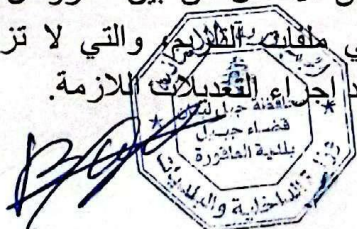 ي ملفات التلزيم، والتي لا تز
د اجراء التعديلات اللازمة.
محافظة جبل لبنان
قضاء جبيل
بلدية العاقورة
وزارة الداخلية والبلديات